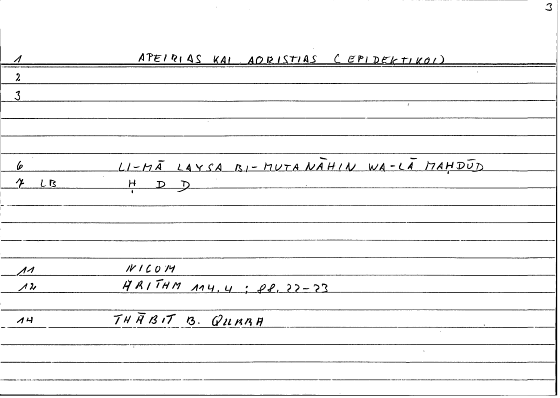 3
1 APEIRIAS KAI AORISTIAS (EPIDEKTIKOI)
2
3
6 LI-MĀ LAYSA BI-MUTANĀHIN WA-LĀ MAḤDŪD
7 LB Ḥ D D
11 NICOM
12 ARITHM 114.4 ; 88.22-23
14 THĀBIT B. QURRA